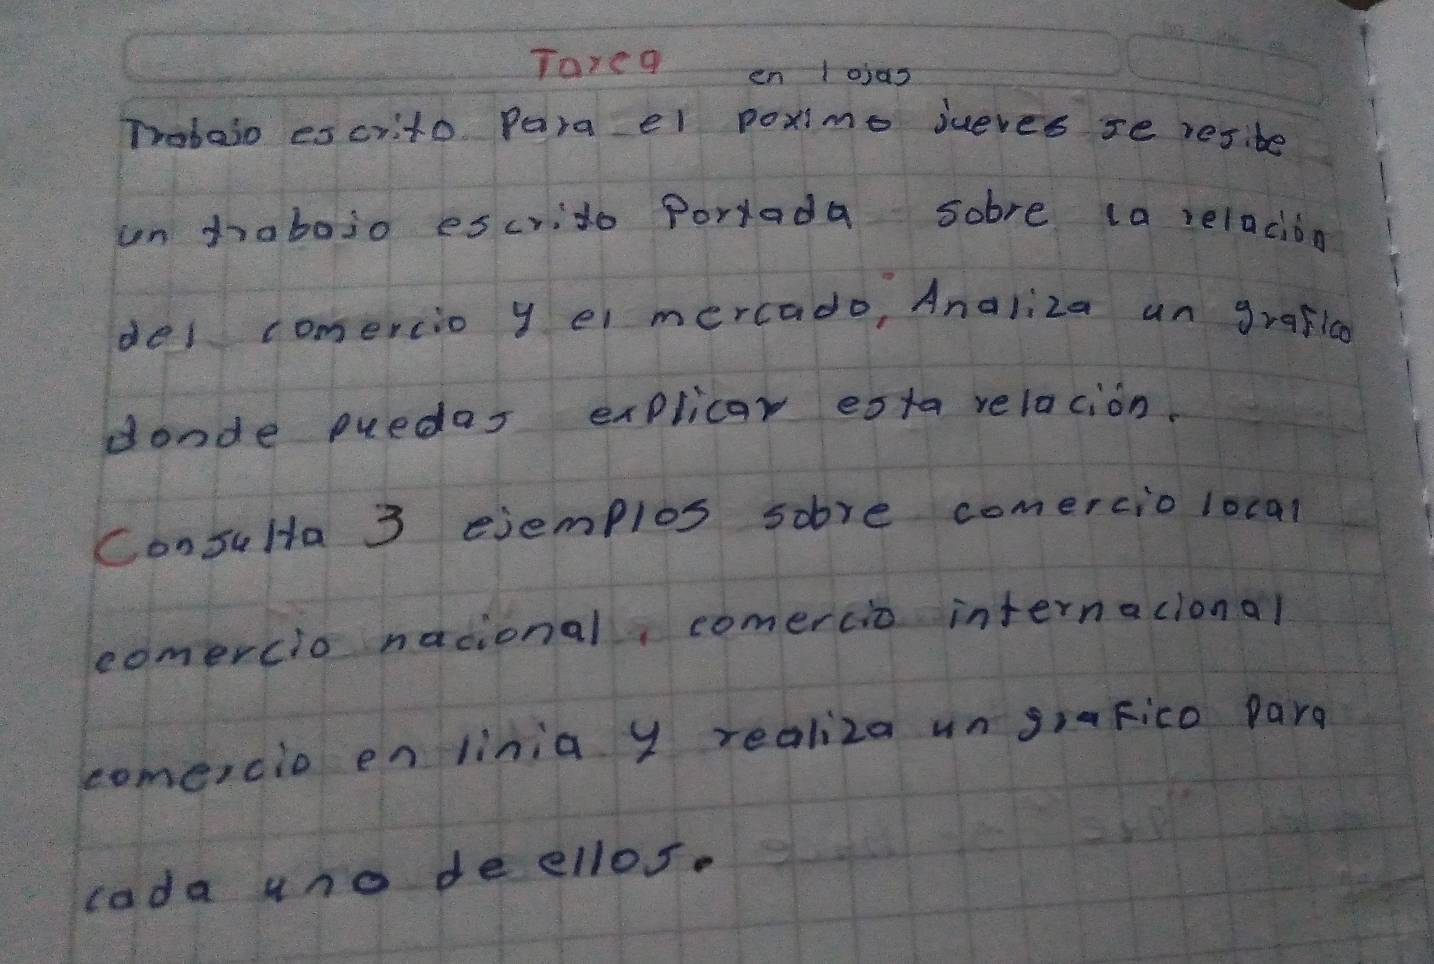 Tarea
en lojas
Trabajo escrito Para el poximo jueves se resibe
un trabajo escrito Portada sobre la relación
del comercio y el mercado, Analiza un grafico
donde puedas explicar esta relación.
Consulta 3 ejemplos sobre comercio local
comercio nacional, comercio internacional
comercio en linia y realiza un grafico para
cada uno de ellos.